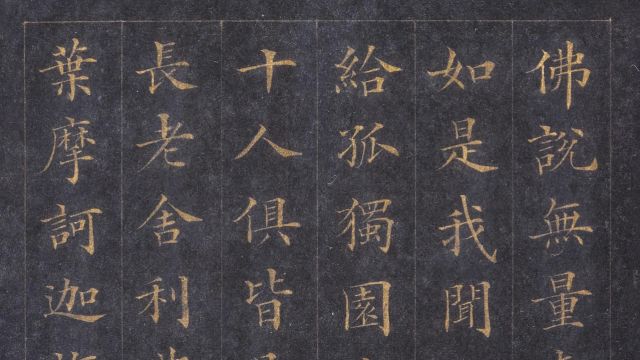 佛說無量
如是我聞
給孤獨園
十人俱皆
長老舍利
葉摩訶迦